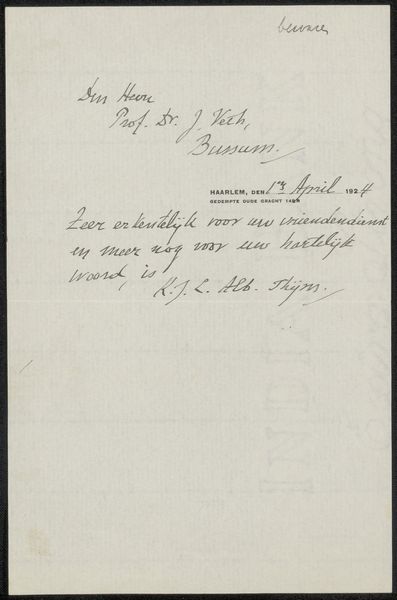 bewaren
Den Heer
Prof. Dr. J. Veth,
Bussum.
HAARLEM, DEN 1en April 1924
GEDEMPTE OUDE GRACHT 142
Zeer erkentelijk voor uw vriendendienst
en meer nog voor uw hartelijk
woord, is
K. J. L. Alb. Thijm.